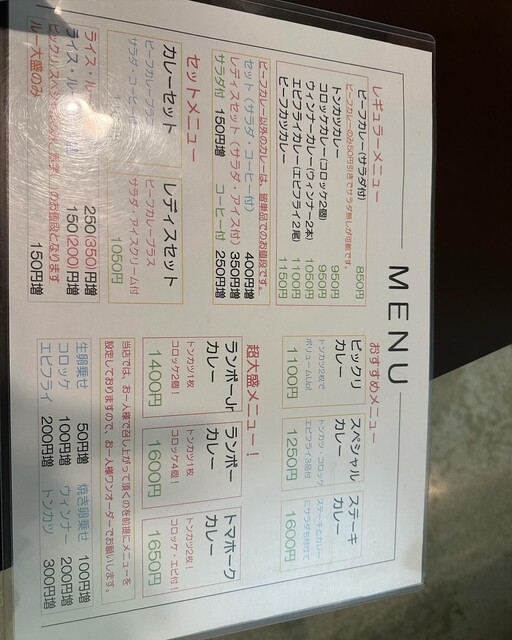 MENU
レギュラーメニュー
ビーフカレー(サラダ付) 850円
ビーフカレーのみ50円引きでサラダ無しが可能です。
トンカツカレー 950円
コロッケカレー(コロッケ2個) 950円
ウィンナーカレー(ウィンナー2本) 1050円
エビフライカレー(エビフライ2尾) 1100円
ビーフカツカレー 1150円
ビーフカレー以外のカレーは、皆単品でのお値段です。
セット(サラダ・コーヒー付) 400円増
レディスセット(サラダ・アイス付) 350円増
サラダ付 150円増 コーヒー付 250円増
セットメニュー
カレーセット
ビーフカレープラス
サラダ・コーヒー付
レディスセット
ビーフカレープラス
サラダ・アイスクリーム付
1050円
ライス・ルー
250(350)円増
ライス・ル
150(200)円増
ビックリスペシャル
(赤字)のお値段となります
ルー大盛のみ 150円増
おすすめメニュー
ビックリ
カレー
トンカツ2枚で
ボリュームUp!
1100円
スペシャル
カレー
トンカツ・コロッケ
エビフライ3品付
1250円
ステーキ
カレー
ステーキとカレー
にサラダも付けて
1600円
超大盛メニュー！
ランボーJr
カレー
トンカツ1枚
コロッケ2個！
1400円
ランボー
カレー
トンカツ1枚
コロッケ4個！
1600円
トマホーク
カレー
トンカツ2枚！
コロッケ・エビ付！
1650円
当店では、お一人様で召し上がって頂くのを前提にメニューを
設定しておりますので、お一人様ワンオーダーでお願いします。
生卵乗せ 50円増 焼き卵乗せ 100円増
コロッケ 100円増 ウィンナー 200円増
エビフライ 200円増 トンカツ 300円増